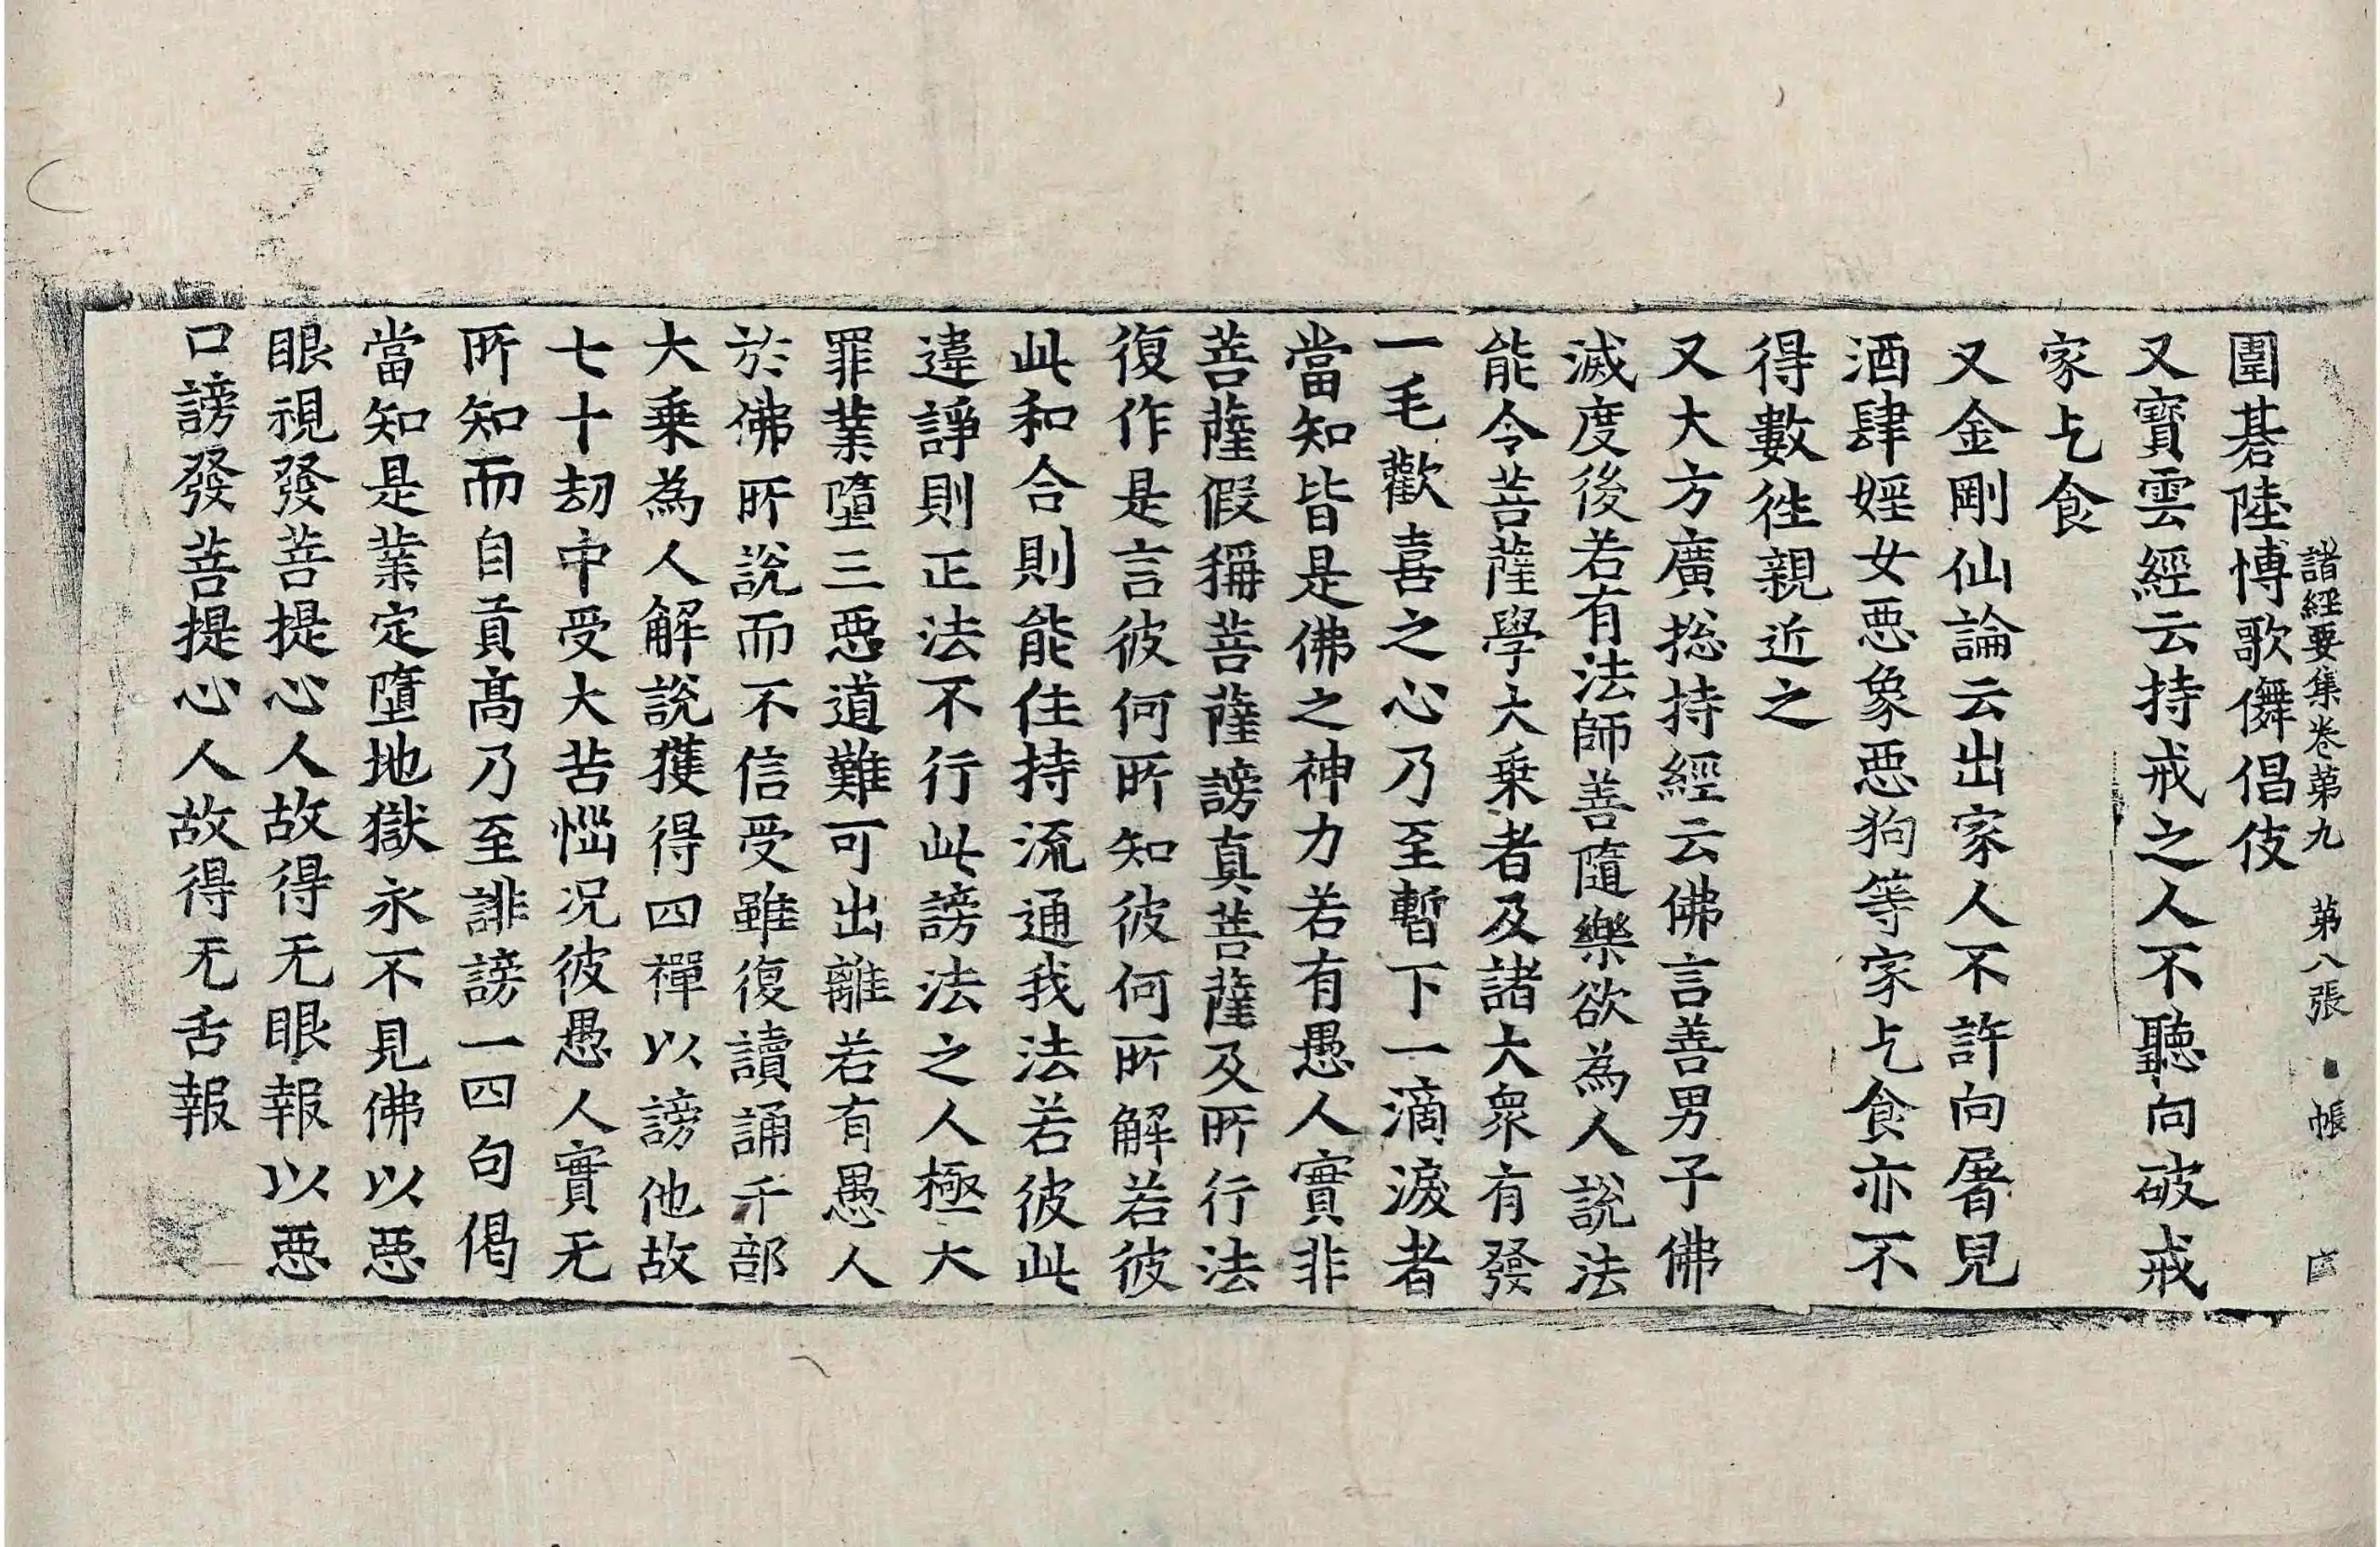 諸經要集卷第九 第八張 帳
圍碁陸博歌儛倡伎
又寶雲經云持戒之人不聽向破戒
家乞食
又金剛仙論云出家人不許向屠兒
酒肆婬女惡象惡狗等家乞食亦不
得數徃親近之
又大方廣揔持經云佛言善男子佛
滅度後若有法師善隨樂欲為人說法
能令菩薩學大乗者及諸大衆有發
一毛歡喜之心乃至暫下一滴淚者
當知皆是佛之神力若有愚人實非
菩薩假稱菩薩謗真菩薩及所行法
復作是言彼何所知彼何所解若彼
此和合則能住持流通我法若彼此
違諍則正法不行此謗法之人極大
罪業墮三惡道難可出離若有愚人
於佛所說而不信受雖復讀誦千部
大乗為人解說獲得四禪以謗他故
七十劫中受大苦惱况彼愚人實无
所知而自貢髙乃至誹謗一四句偈
當知是業定墮地獄永不見佛以惡
眼視發菩提心人故得无眼報以惡
口謗發菩提心人故得无舌報